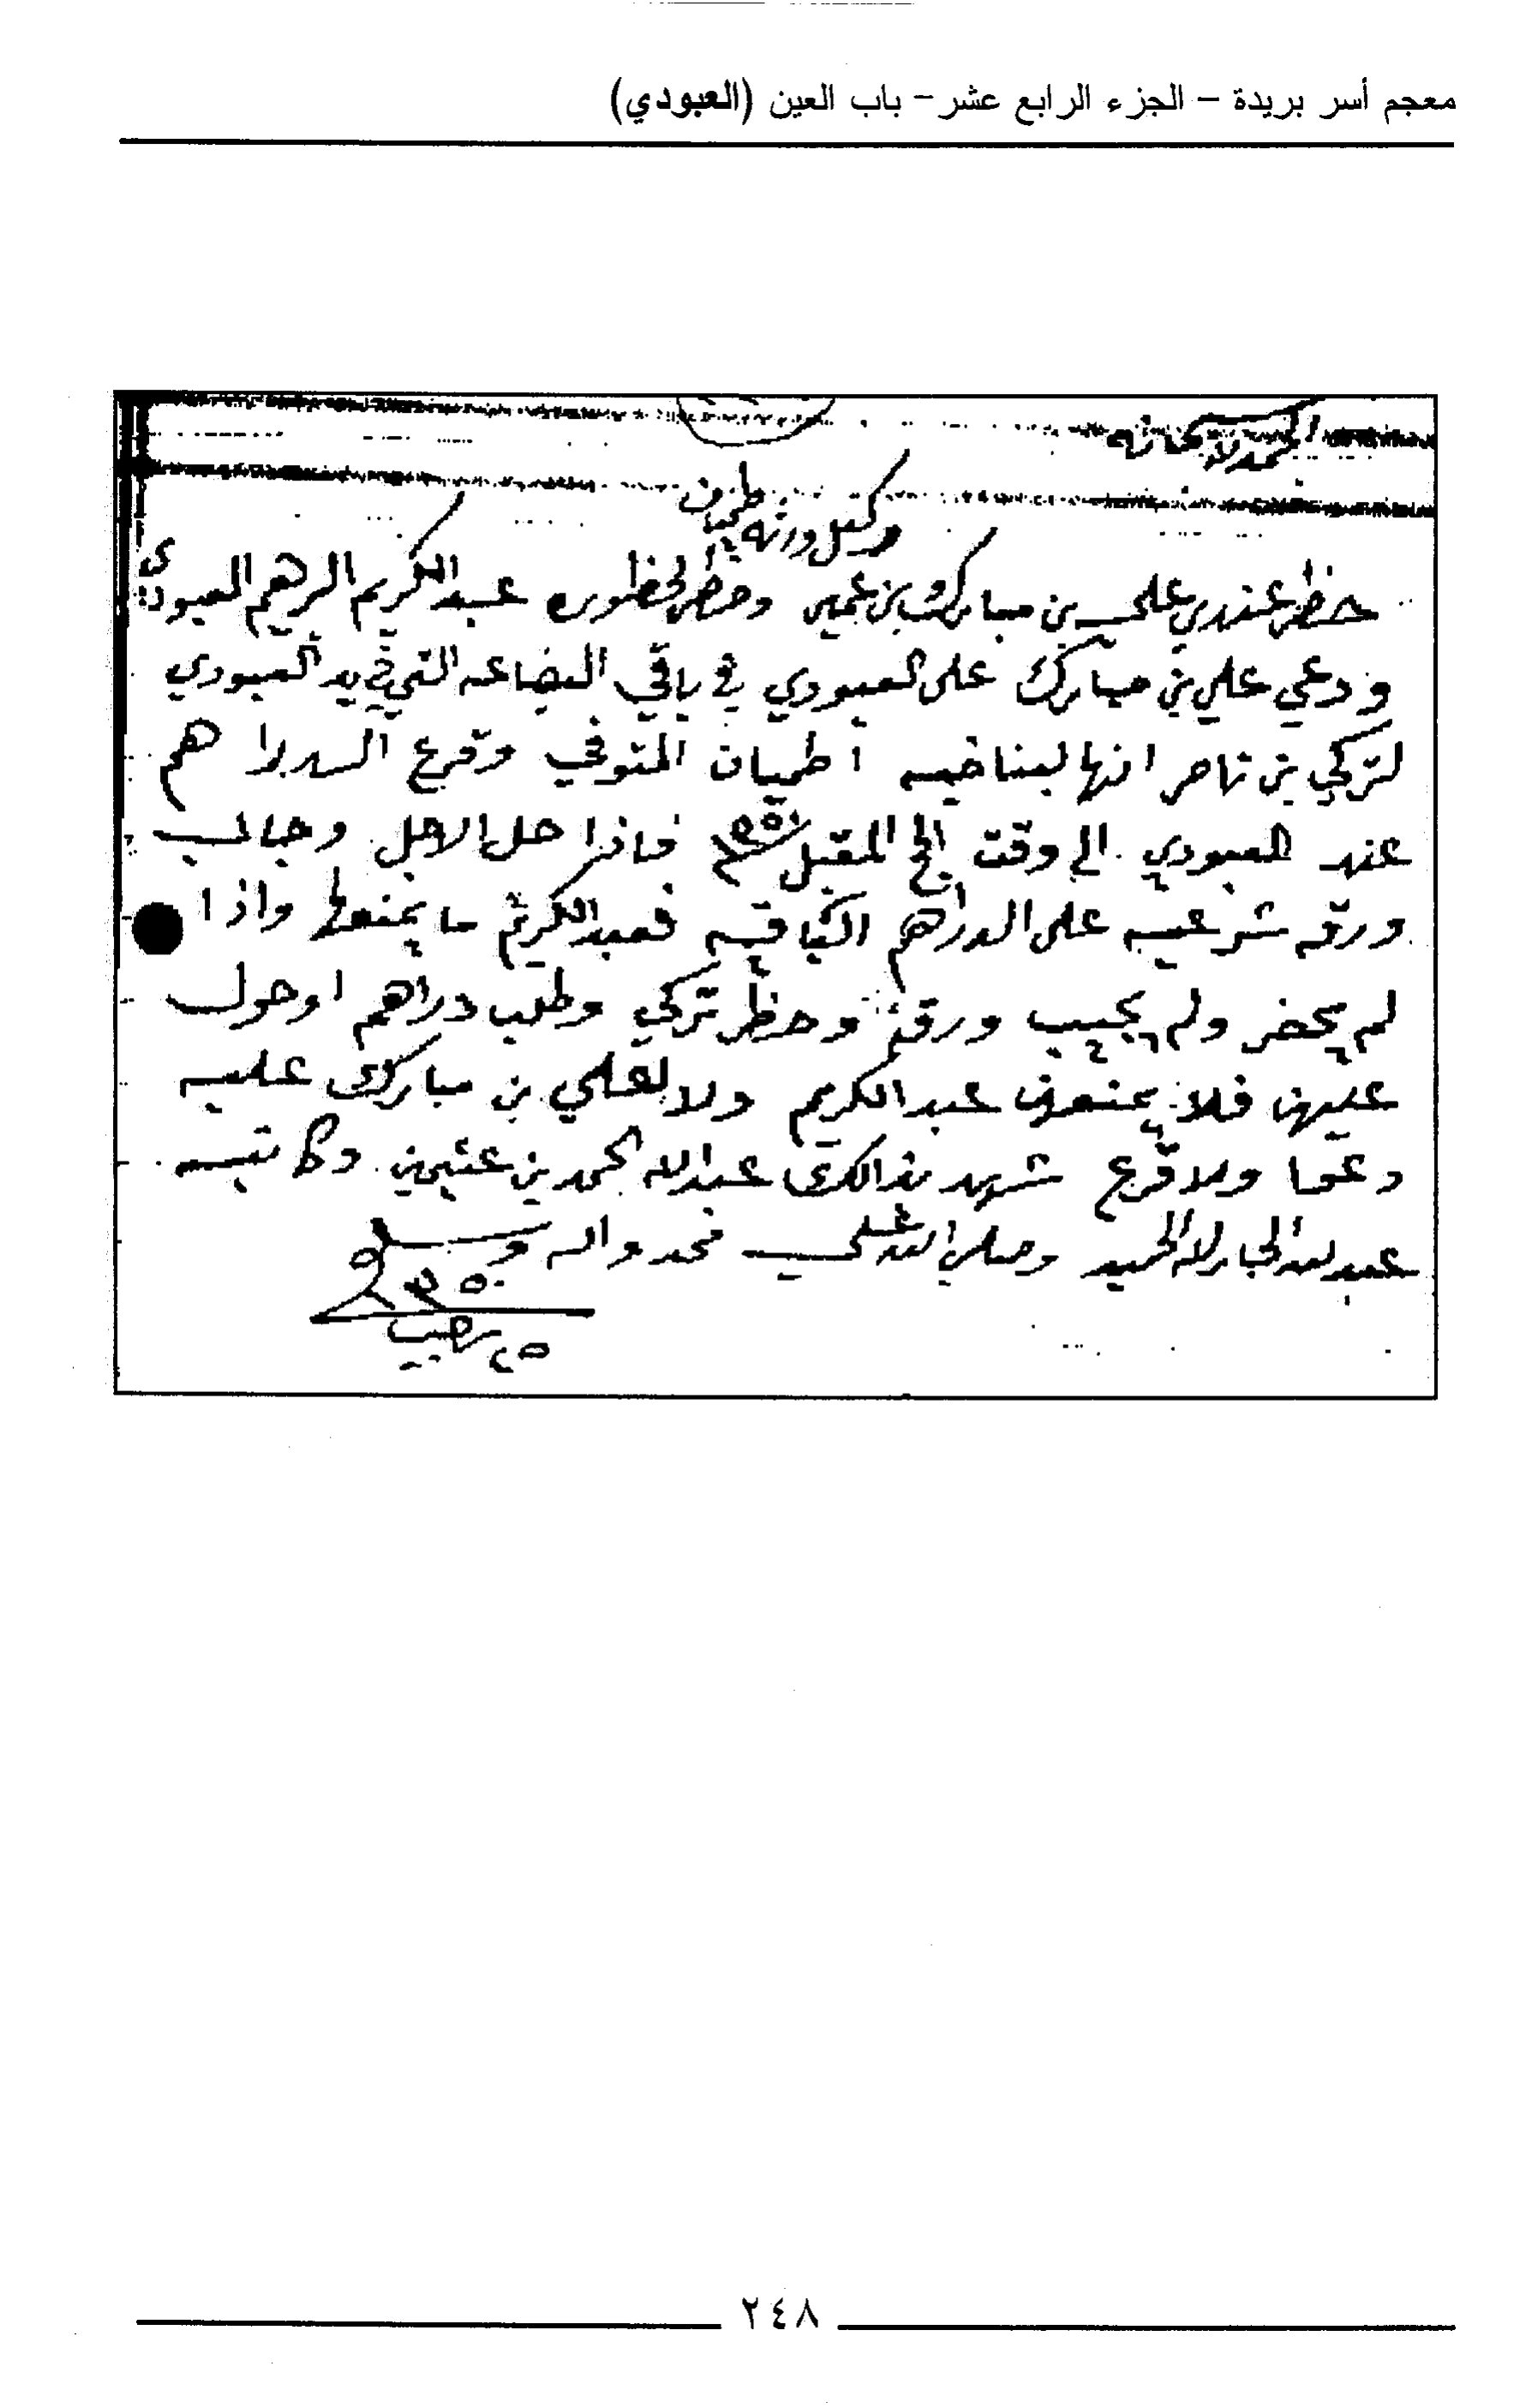 معجم أسر بريدة – الجزء الرابع عشر – باب العين (العبودي)
الحمد لله سبحانه
وكيل ورثة طميان
حظر عندي علي بن مبارك بن عمير وحظر لحظوره عبدالكريم البرهيم العبودي
ودعي علي بن مبارك على العبودي في باقي البضاعه التي في يد العبودي
لتركي بن ناصر انها المتوفي وقرع الدراهم
عند العبودي الى وقت المقبل فاذا حل الاجل وجاب
ورقه شرعيه على الدراهم فعبدالكريم ما يمنعه واذا
لم يحضر ولم يجيب ورقة وحظر تركي وطلب دراهم او حول
عليهن فلا يمنعهن عبدالكريم ولا لعلي بن مبارك عليه
دعوا ولا قرع شهد بذالك عبدالله المحمد بن عثيمين وكاتبه
عبدالله الجارالله الحميد وصلى الله على محمد واله وسلم
٢٥ رجب
٢٤٨